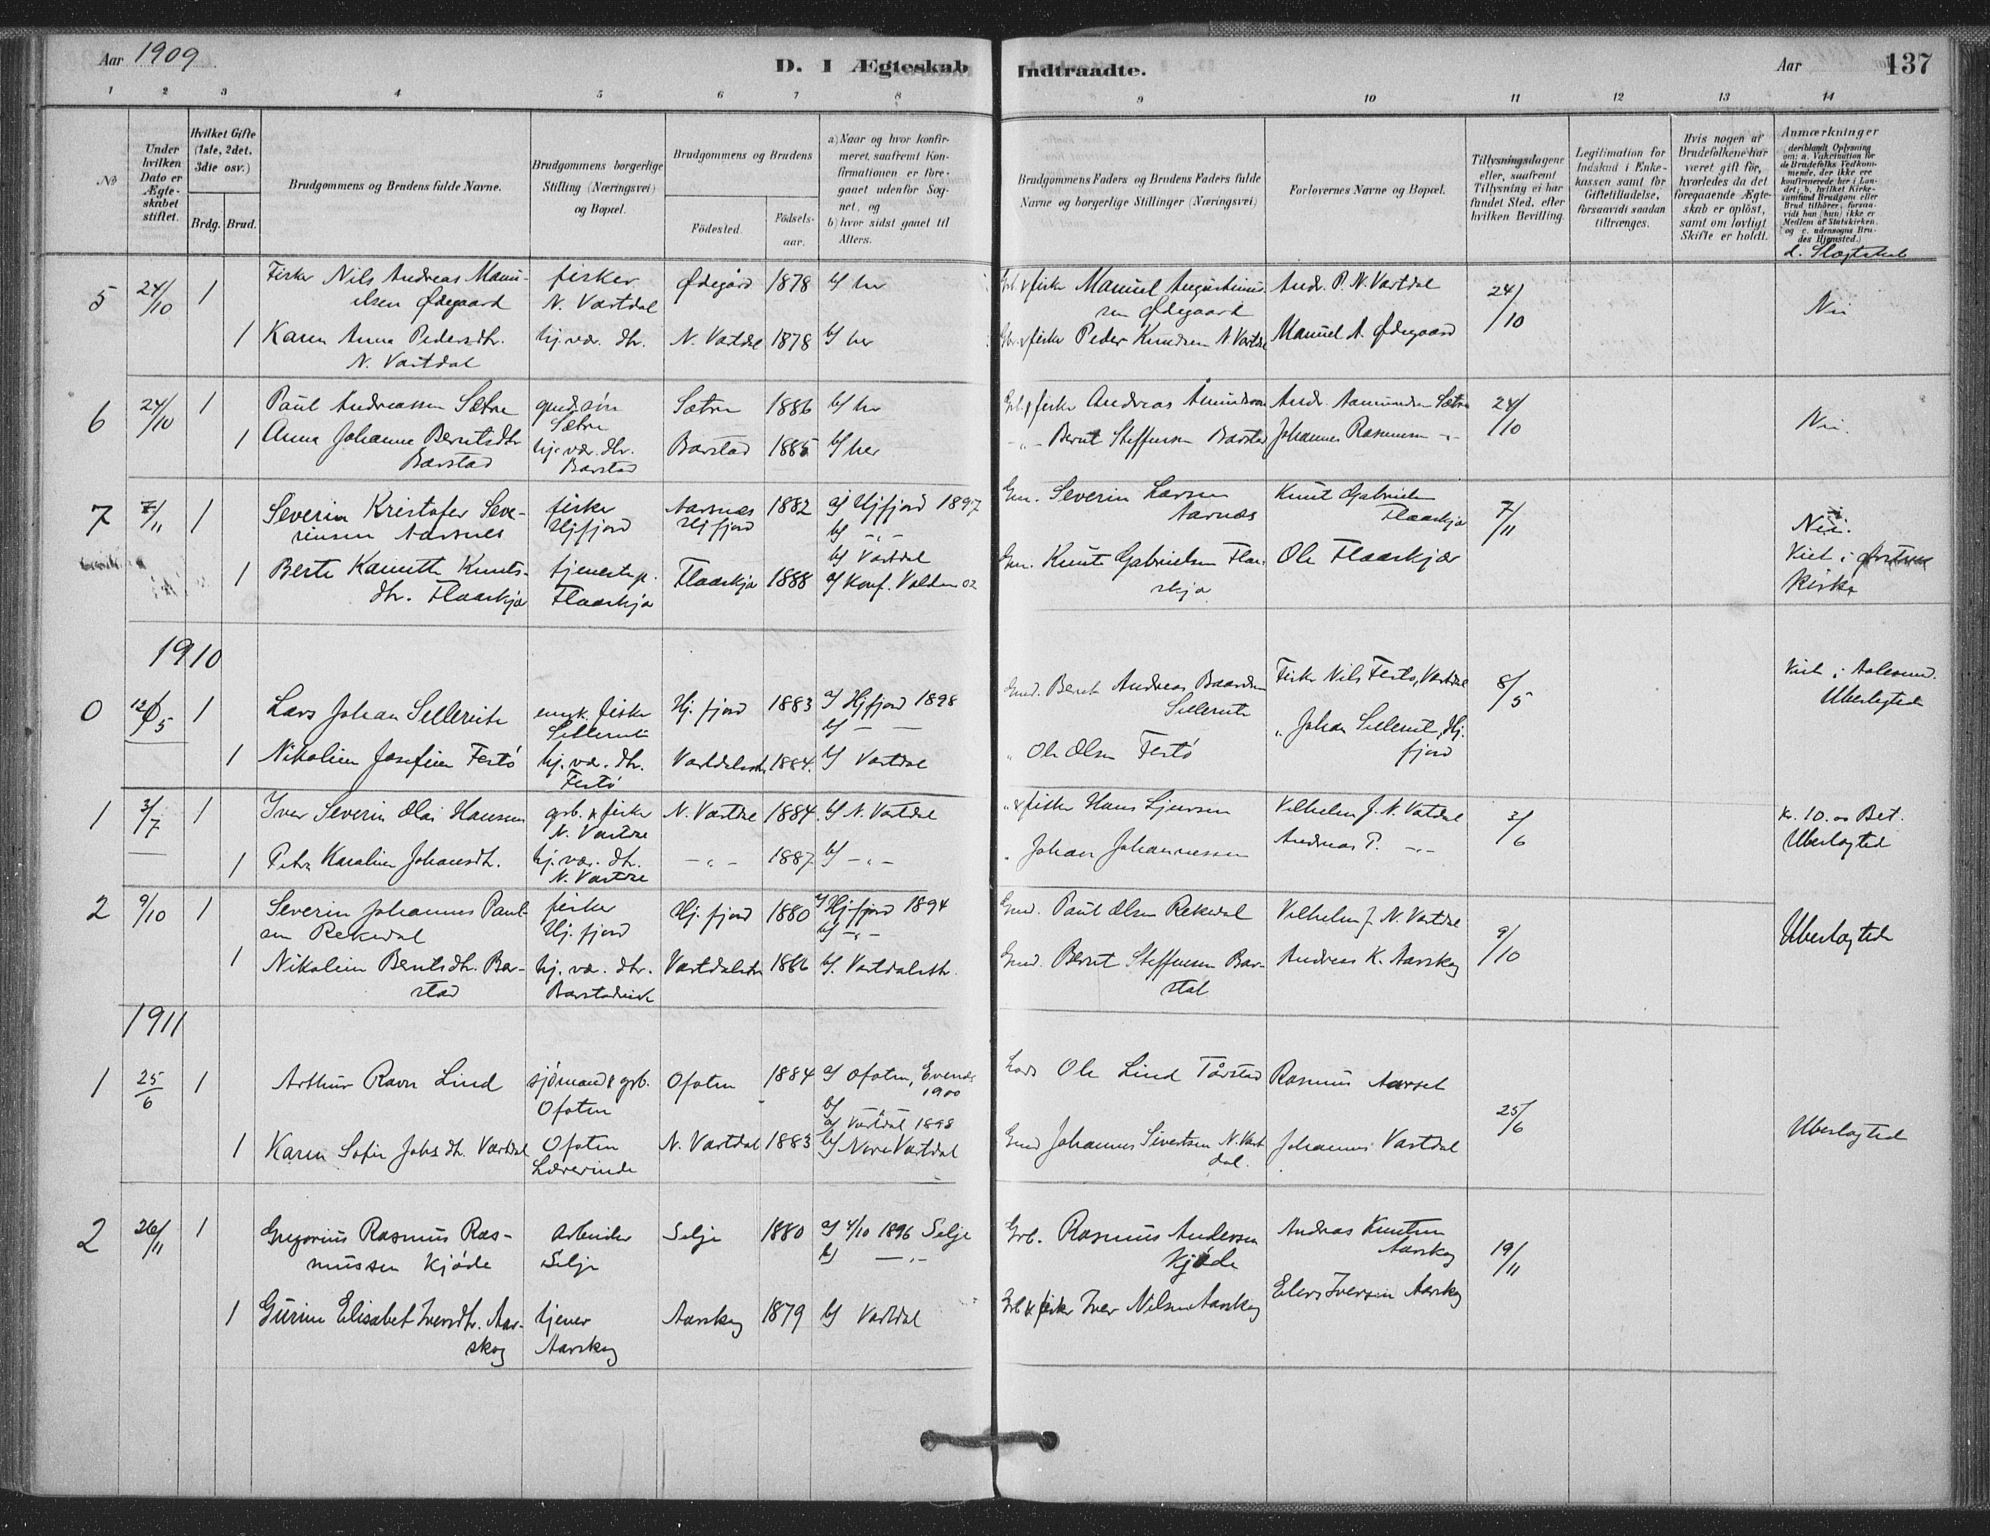 Aar 1909
D. I Ægteskab Indtraadte.
Aar 137
1 2 3 4 5 6 7 8 9 10 11 12 13 14
No
Under hvilken Dato er Ægteskabet stiftet.
Hvilket Gifte (1ste, 2det, 3die osv.)
Brdg. Brud.
Brudgommens og Brudens fulde Navne.
Brudgommens borgerlige Stilling (Næringsvei) og Bopæl.
Brudgommens og Brudens
Fødested.
Fødselsaar.
a) Naar og hvor konfirmeret, saafremt Konfirmationen er foregaaet udenfor Sognet, og
b) hvor sidst gaaet til Alters.
Brudgommens Faders og Brudens Faders fulde Navne og borgerlige Stillinger (Næringsvei)
Forlovernes Navne og Bopæl.
Tillysningsdagene eller, saafremt Tillysning ei har fundet Sted, efter hvilken Bevilling.
Legitimation for Indskud i Enkekassen samt for Giftetilladelse, forsaavidt saadan tiltrænges.
Hvis nogen af Brudefolkene har været gift før, hvorledes da det foregaaende Ægteskab er opløst, samt om lovligt Skifte er holdt.
Anmærkninger
deriblandt Oplysning om: a. Vakcination for de Brudefolks Vedkommende, der ikke ere konfirmerede her i Landet; b. hvilket Kirkesamfund Brudgom eller Brud tilhører, forsaavidt han (hun) ikke er Medlem af Statskirken, og c. udensogns Brudes Hjemsted.)
d. Slægtskab
5 24/10 1 Fisker Nils Andreas Manuelsen Ødegaard fisker N. Vartdal Ødegård 1878 b) her
Grb. & fisker Manuel Augustinussen Ødegaard Andr. P. N. Vartdal 24/10 Nei
1 Karen Anna Pedersdtr. N. Vartdal hj. vær. dtr. N. Vartdal 1878 b) her
Gbr. & fisker Peder Knudsen N. Vartdal Manuel A. Ødegaard
6 24/10 1 Paul Andreassen Sætre gmd. søn Sætre Sætre 1886 b) her
Grb. & fisker Andreas Åmundsen Andr. Aamundsen Sætre 24/10 Nei.
1 Anna Johanne Berntsdtr Barstad hj. vær. dtr. Barstad Barstad 1885 b) her
-"- Bernt Steffensen Barstad Johannes Rasmussen -"-
7 7/11 1 Severin Kristofer Severinsen Aarsnes fisker Hjfjord Aarsnæs Hjfjord 1882 a) Hjfjord 1897 b) -"-
Gm. Severin Larsen Aarnæs Knut Gabrielsen Flaaskjær 7/11 Nei.
Viet i Ørsten Kirke
1 Berte Kanutte Knutsdtr. Flaaskjær tjenestep. Flaaskjær Flaaskjær 1888 b) Vartdal a) Konf. Volden 02
Gm. Knut Gabrielsen Flaaskjær Ole Flaaskjær
1910
0 12/5 1 Lars Johan Sellereite fisker Hj. fjord 1883 a) Hjfjord 1898 b) -
Gmd. Bernt Andreas Baardsen Sellereite Fisker Nils Festø, Vartdal 8/5 Viet i Aalesund. Ubeslægtede
1 Nikoline Josefine Festø hj. vær. dtr. Festø Vartdalsstr. 1884. b) Vartdal
" Ole Olsen Festø " Johan Sellereit, Hj. fjord
1 3/7 1 Iver Severin Olai Hansen grb. & fisker N. Vartdal N. Vartdal 1884. b) N. Vartdal
" & fisker Hans Sjursen Vilhelm J. N. Vatdal 3/6 kr. 10.00 Bet. Ubeslægtede
1 Petra Karoline Johansdtr. hj. vær. dtr. N. Vartdal -"- 1887 b) -"-
" Johan Johannessen Andreas P. -"-
2 9/10 1 Severin Johannes Paulsen Rekedal fisker Hj. fjord Hj. fjord 1880 a) Hjfjord 1894 b) -"-
Gmd. Paul Olsen Rekedal Vilhelm J. N. Vartdal 9/10 Ubeslægtede
1 Nikoline Berntsdtr. Barstad hj. vær. dtr. Vartdalsstr 1886 b). Vartdalsstr.
Gmd. Bernt Steffensen Barstad Andreas K. Aarskog
1911
1 25/6 1 Arthur Ravn Lind sjømand & grb. Ofoten Ofoten 1884 a) Ofoten, Evenes 1900 b)
Ole Lind Tårstad Rasmus Aarset 25/6 Ubeslægtede
1 Karen Sofie Johs dtr. Vartdal Ofoten Lærerinde N. Vartdal 1883 a) Vartdal 1898 b) Nore Vartdal
Gmd Johannes Sivertsen N. Vartdal. Johannes Vartdal
2 26/11 1 Gregorius Rasmus Rasmussen Kjøde arbeider Selje Selje 1880 a) 4/10 1896 Selje b) -"-
Grb. Rasmus Andersen Kjøde Andreas Knutsen Aarskog 19/11
1 Gurine Elisabet Iversdtr. Aarskog tjener Aarskog Aarskog 1879 b) Vartdal
Grb & fisker Iver Nilsen Aarskog Elers Iversen Aarskog